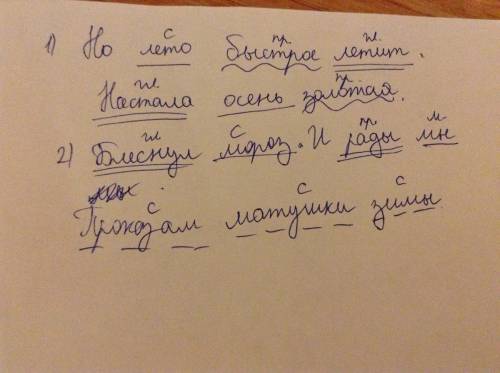 с пр. гл.
1) Но лето быстрое летит.
гл. пр.
Настала осень золотая.
гл с пр м
2) Блеснул мороз. И рады мы
.
с с с
Проказам матушки зимы.